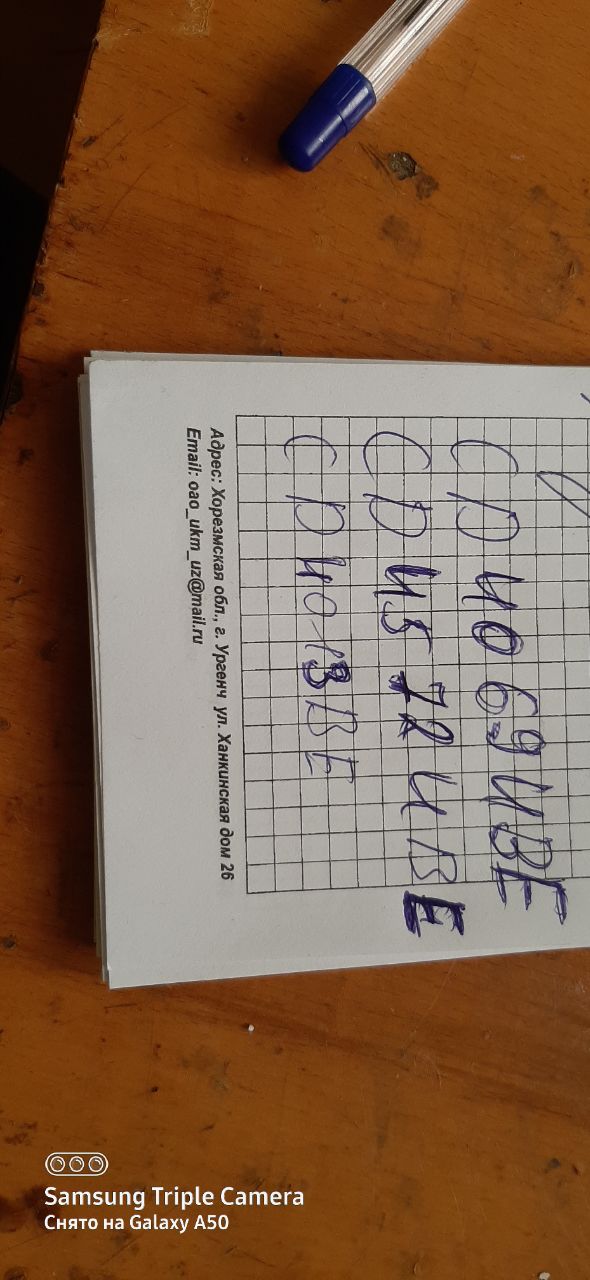 CD 4069 UBE
CD 4572 UBE
CD 4013 BE
Адрес: Хорезмская обл., г. Ургенч ул. Ханкинская дом 26
Email: oao_ukm_uz@mail.ru
Samsung Triple Camera
Снято на Galaxy A50